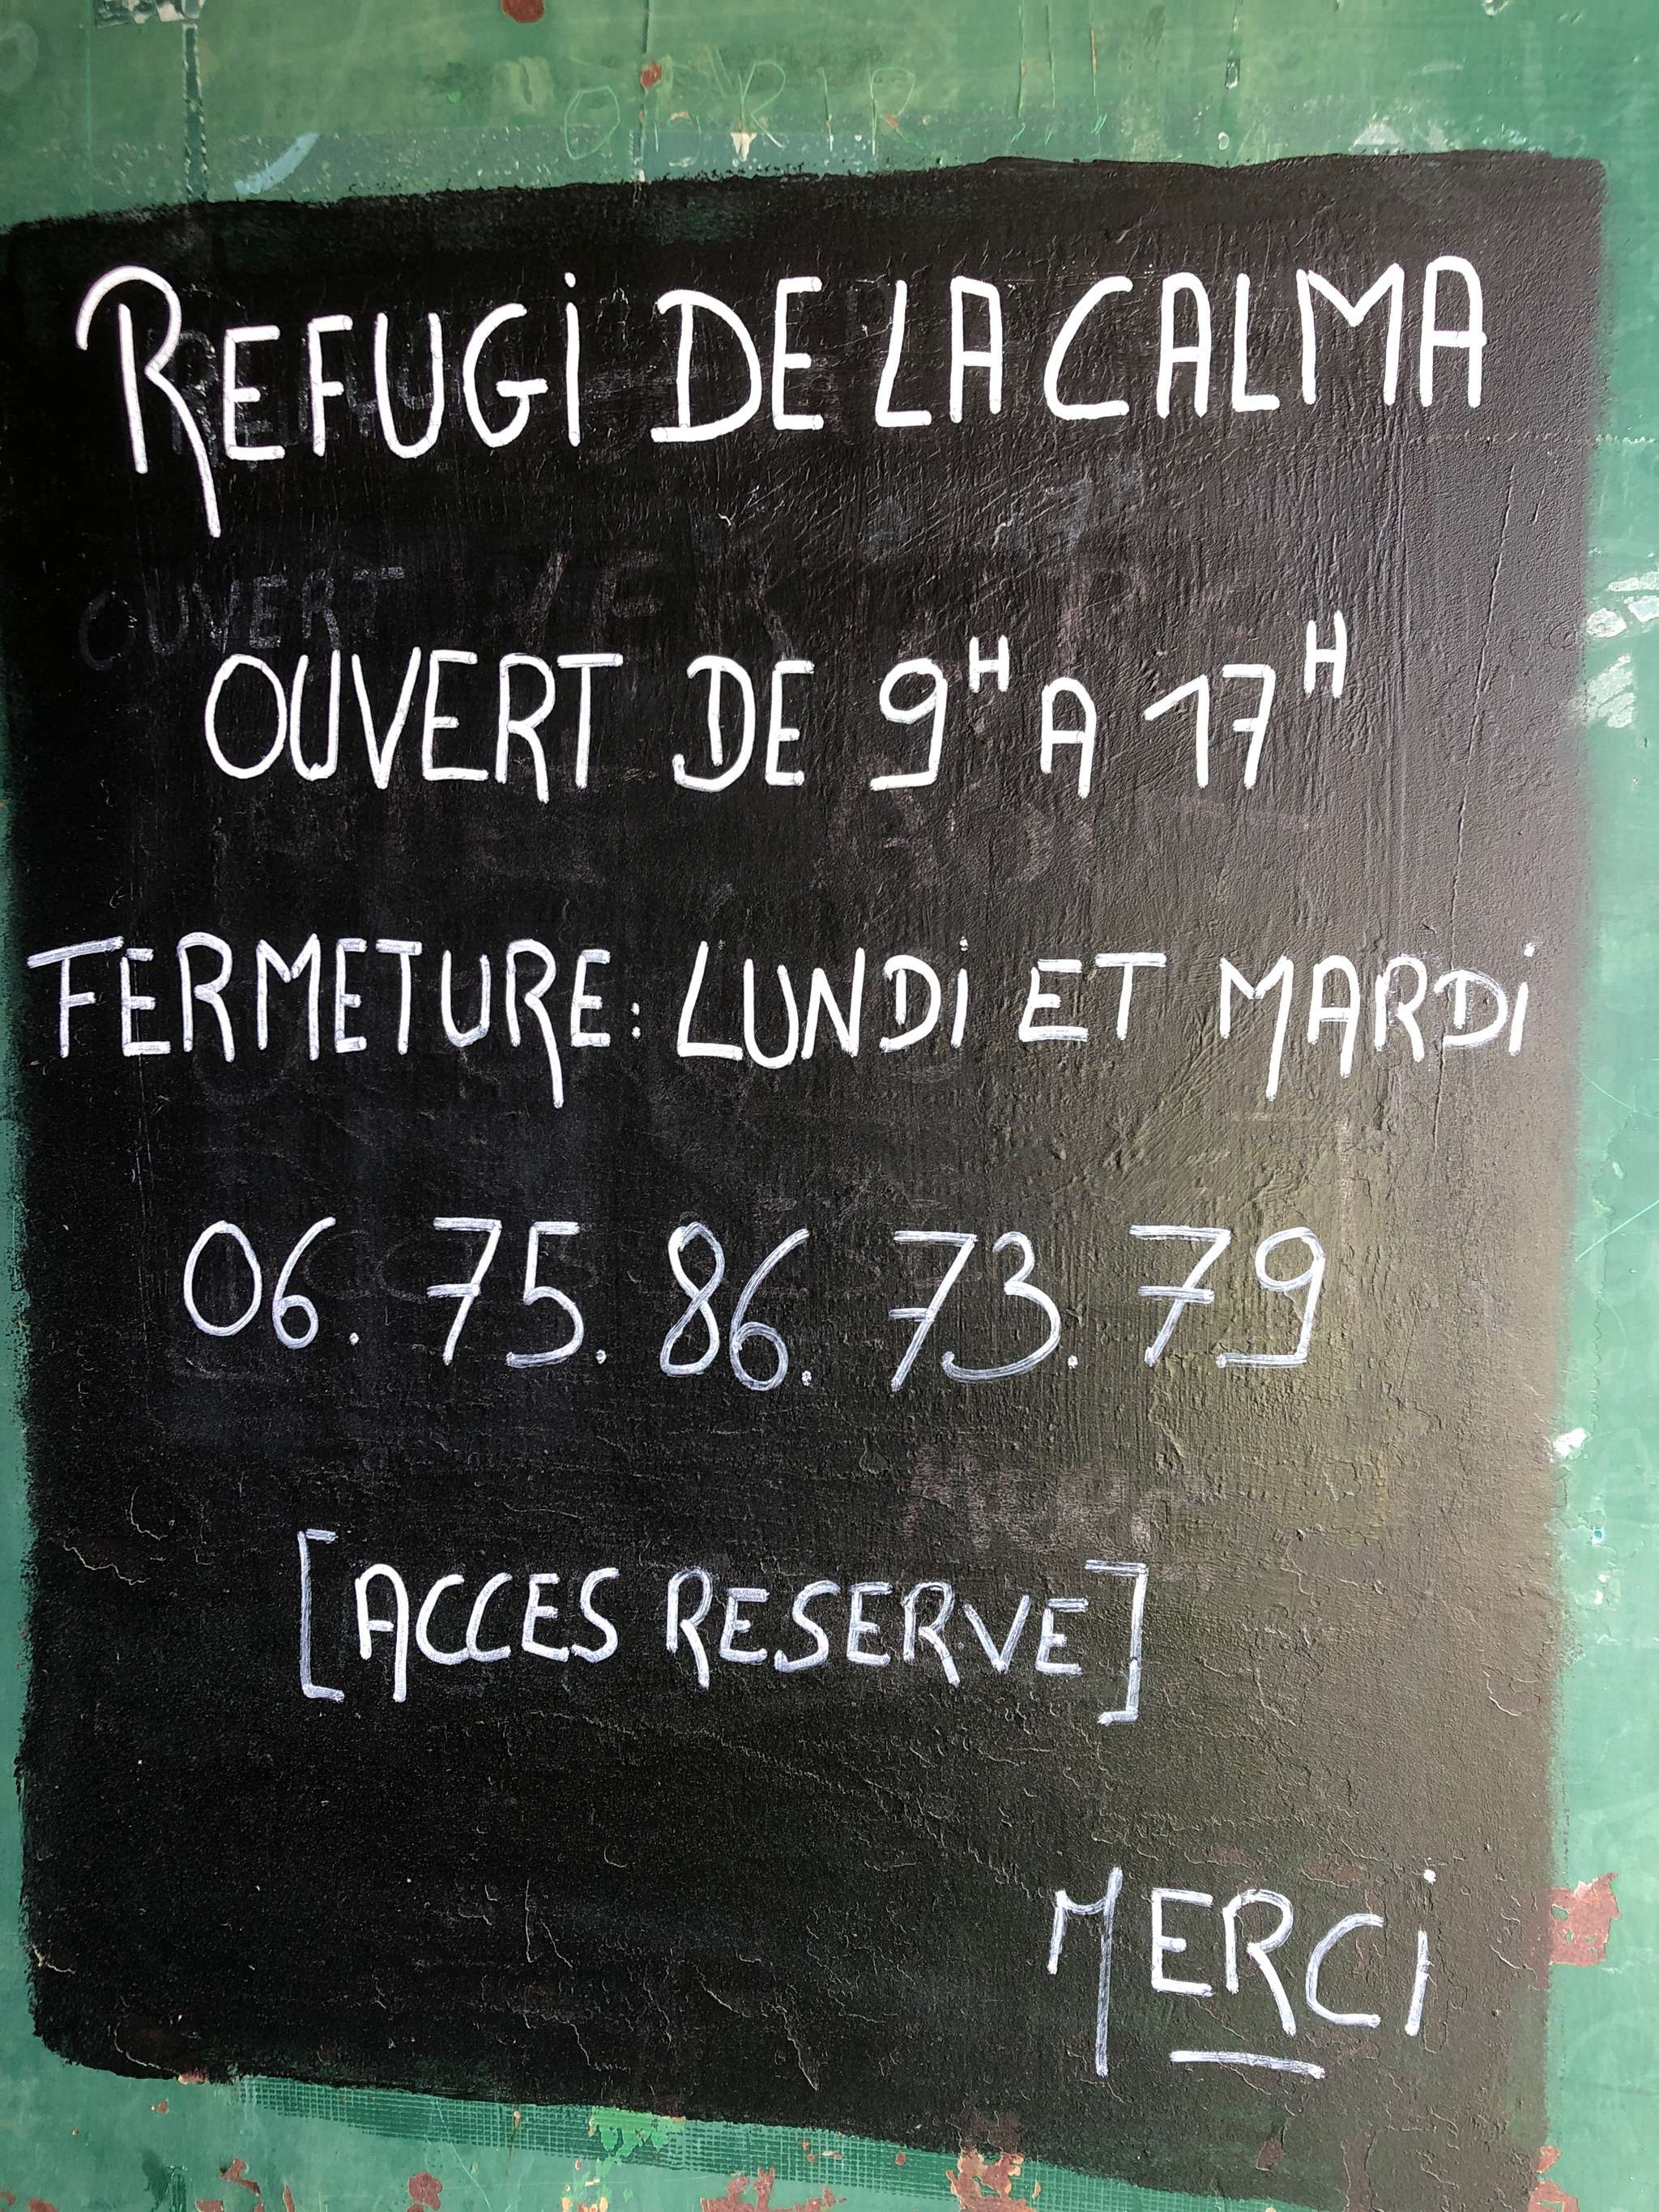 REFUGI DE LA CALMA
OUVERT
OUVERT DE 9H A 17H
FERMETURE: LUNDI ET MARDI
06. 75. 86. 73. 79
[ACCES RESERVE]
MERCI